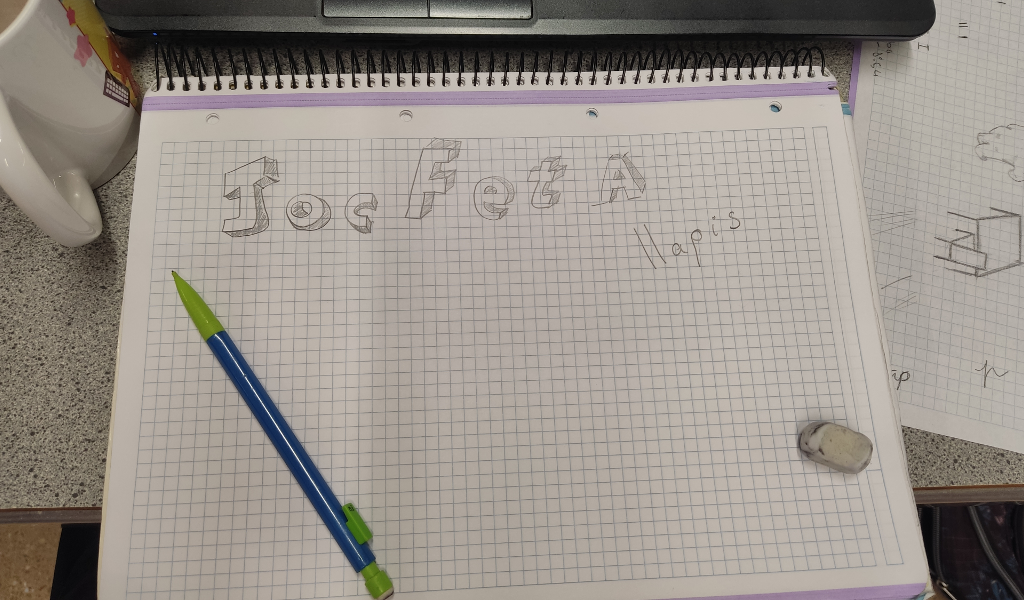 Joc Fet A
llapis